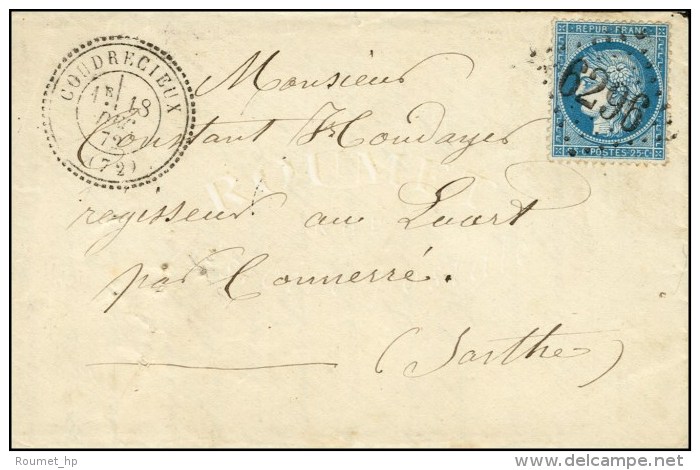 COUDRECIEUX
1E 18
72
(72)
REPUB. FRANC.
6296
25 C POSTES 25 C
Monsieur
Constant Houdayer
ROUMET
régisseur au Luart
par Connerré.
(Sarthe)
Roumet_hp
delcampe.net